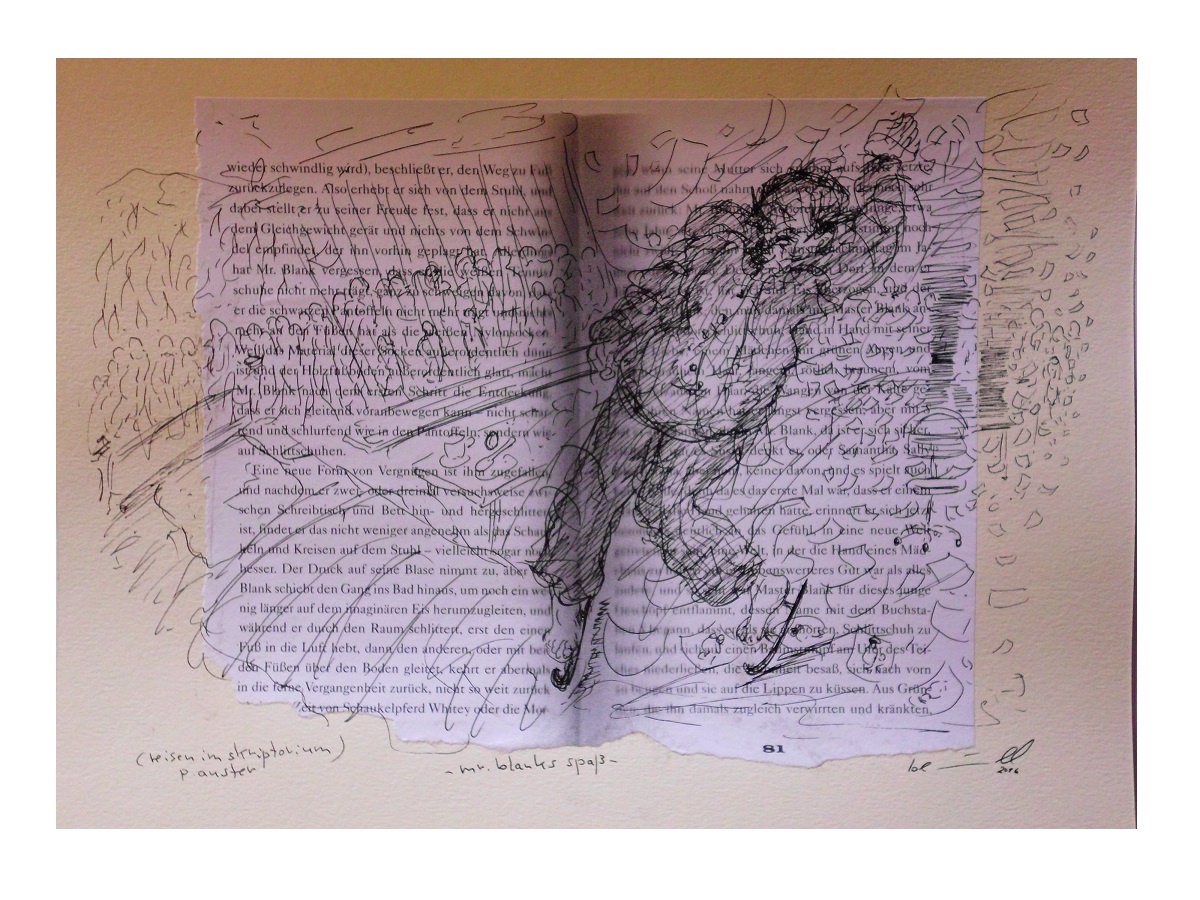 wieder schwindlig wird), beschließt er, den Weg zu Fuß
zurückzulegen. Also erhebt er sich von dem Stuhl, und
dabei stellt er zu seiner Freude fest, dass er nicht aus
dem Gleichgewicht gerät und nichts von dem Schwin-
del empfindet, der ihn vorhin geplagt hat. Allerdings
hat Mr. Blank vergessen, dass er die weißen Tennis-
schuhe nicht mehr trägt, ganz zu schweigen davon, dass
er die schwarzen Pantoffeln nicht mehr trägt und nichts
mehr an den Füßen hat als die weißen Nylonsocken.
Weil das Material dieser Socken außerordentlich dünn
ist und der Holzfußboden außerordentlich glatt, macht
Mr. Blank nach dem ersten Schritt die Entdeckung,
dass er sich gleitend voranbewegen kann – nicht schar-
rend und schlurfend wie in den Pantoffeln, sondern wie
auf Schlittschuhen.
Eine neue Form von Vergnügen ist ihm zugefallen,
und nachdem er zwei- oder dreimal versuchsweise zwi-
schen Schreibtisch und Bett hin- und hergeschlittert
ist, findet er das nicht weniger angenehm als das Schau-
keln und Kreisen auf dem Stuhl – vielleicht sogar noch
besser. Der Druck auf seine Blase nimmt zu, aber
Blank schiebt den Gang ins Bad hinaus, um noch ein we-
nig länger auf dem imaginären Eis herumzugleiten, und
während er durch den Raum schlittert, erst den einen
Fuß in die Luft hebt, dann den anderen, oder mit bei-
den Füßen über den Boden gleitet, kehrt er abermals
in die ferne Vergangenheit zurück, nicht so weit zurück
zeit von Schaukelpferd Whitey oder die Mor-
seine Mutter sich
auf den Schoß nahm
zurück:
noch
Ja
Dorf, in dem er
und der
damals noch Master Blank
Hand in Hand mit seiner
einem Mädchen mit grünen Augen und
rötlich braunem, vom
Haar, die Wangen von der Kälte ge-
Namen hat er längst vergessen, aber mit S
Mr. Blank, da ist er sich sicher,
denkt er, oder Samantha Sally
keiner davon, und es spielt auch
da es das erste Mal war, dass er einem
Hand gehalten hatte, erinnert er sich jetzt
an das Gefühl, in eine neue Welt
eine Welt, in der die Hand eines Mäd-
Gut war als alles
Master Blank für dieses junge
Geschöpf entflammt, dessen Name mit dem Buchsta-
begann, dass Schlittschuh zu
laufen, und sich auf einen Baumstumpf am Ufer des Tei-
ches niederließen, die besaß, sich nach vorn
zu beugen und sie auf die Lippen zu küssen. Aus Grün-
den, die ihn damals zugleich verwirrten und kränkten,
81
(reisen im skriptorium)
p auster
- mr. blanks spaß -
2016